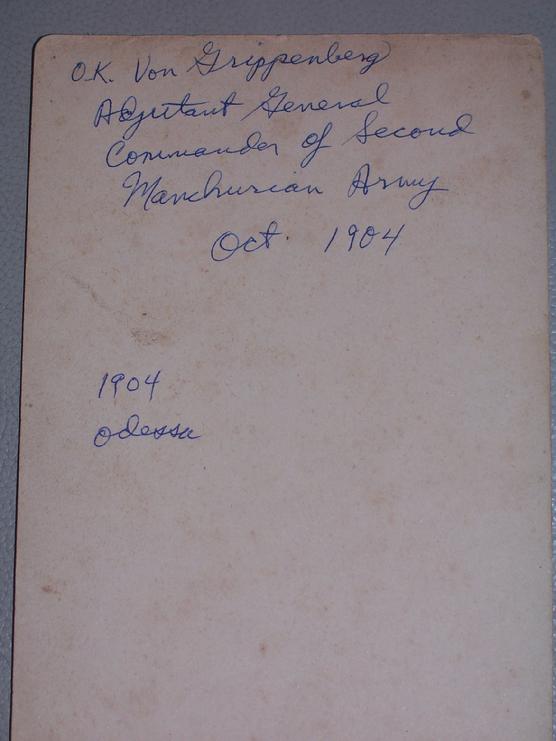 O.K. Von Grippenberg
Adjutant General
Commander of Second
Manchurian Army
Oct. 1904
1904
Odessa